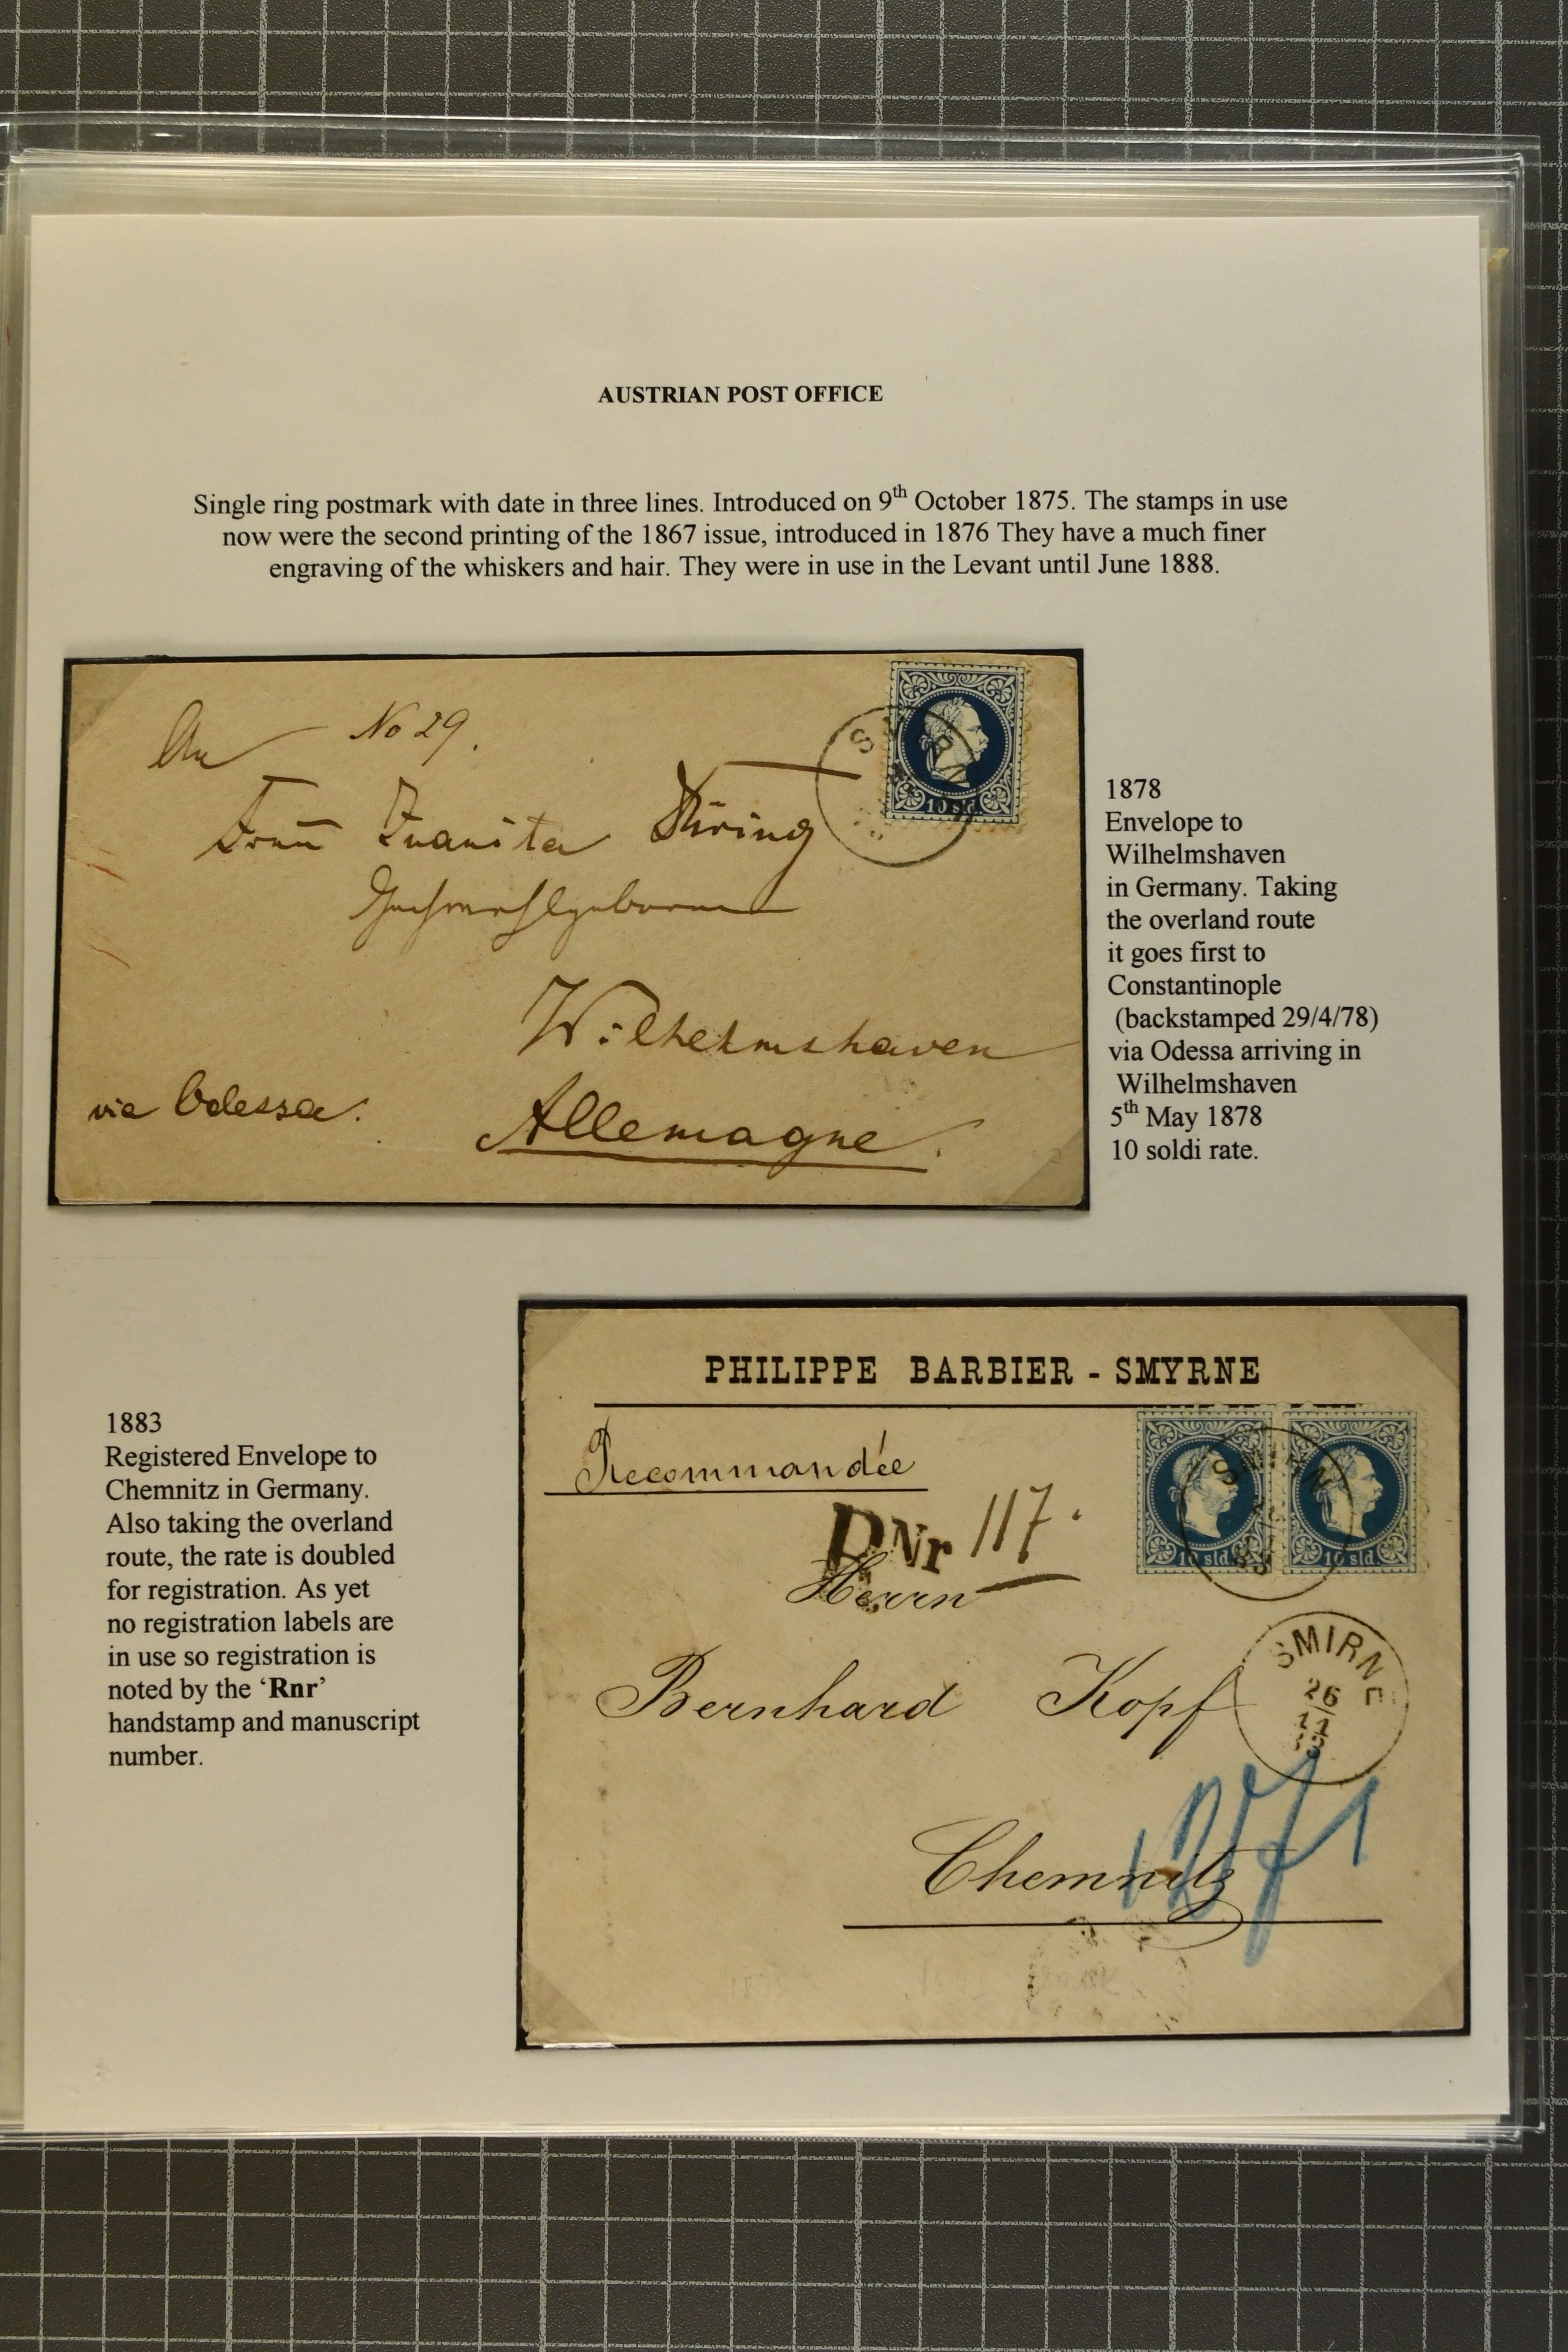 AUSTRIAN POST OFFICE
Single ring postmark with date in three lines. Introduced on 9th October 1875. The stamps in use
now were the second printing of the 1867 issue, introduced in 1876 They have a much finer
engraving of the whiskers and hair. They were in use in the Levant until June 1888.
An No 29.
Frau Juanita Düring
Hochwohlgeboren
Wilhelmshaven
via Odessa.
Allemagne.
10 sld.
1878
Envelope to
Wilhelmshaven
in Germany. Taking
the overland route
it goes first to
Constantinople
(backstamped 29/4/78)
via Odessa arriving in
Wilhelmshaven
5th May 1878
10 soldi rate.
1883
Registered Envelope to
Chemnitz in Germany.
Also taking the overland
route, the rate is doubled
for registration. As yet
no registration labels are
in use so registration is
noted by the ‘Rnr’
handstamp and manuscript
number.
PHILIPPE BARBIER - SMYRNE
Recommandée
RNr 117.
10 sld. 10 sld.
Herrn
Bernhard Kopf
SMIRNE
26
11
Chemnitz